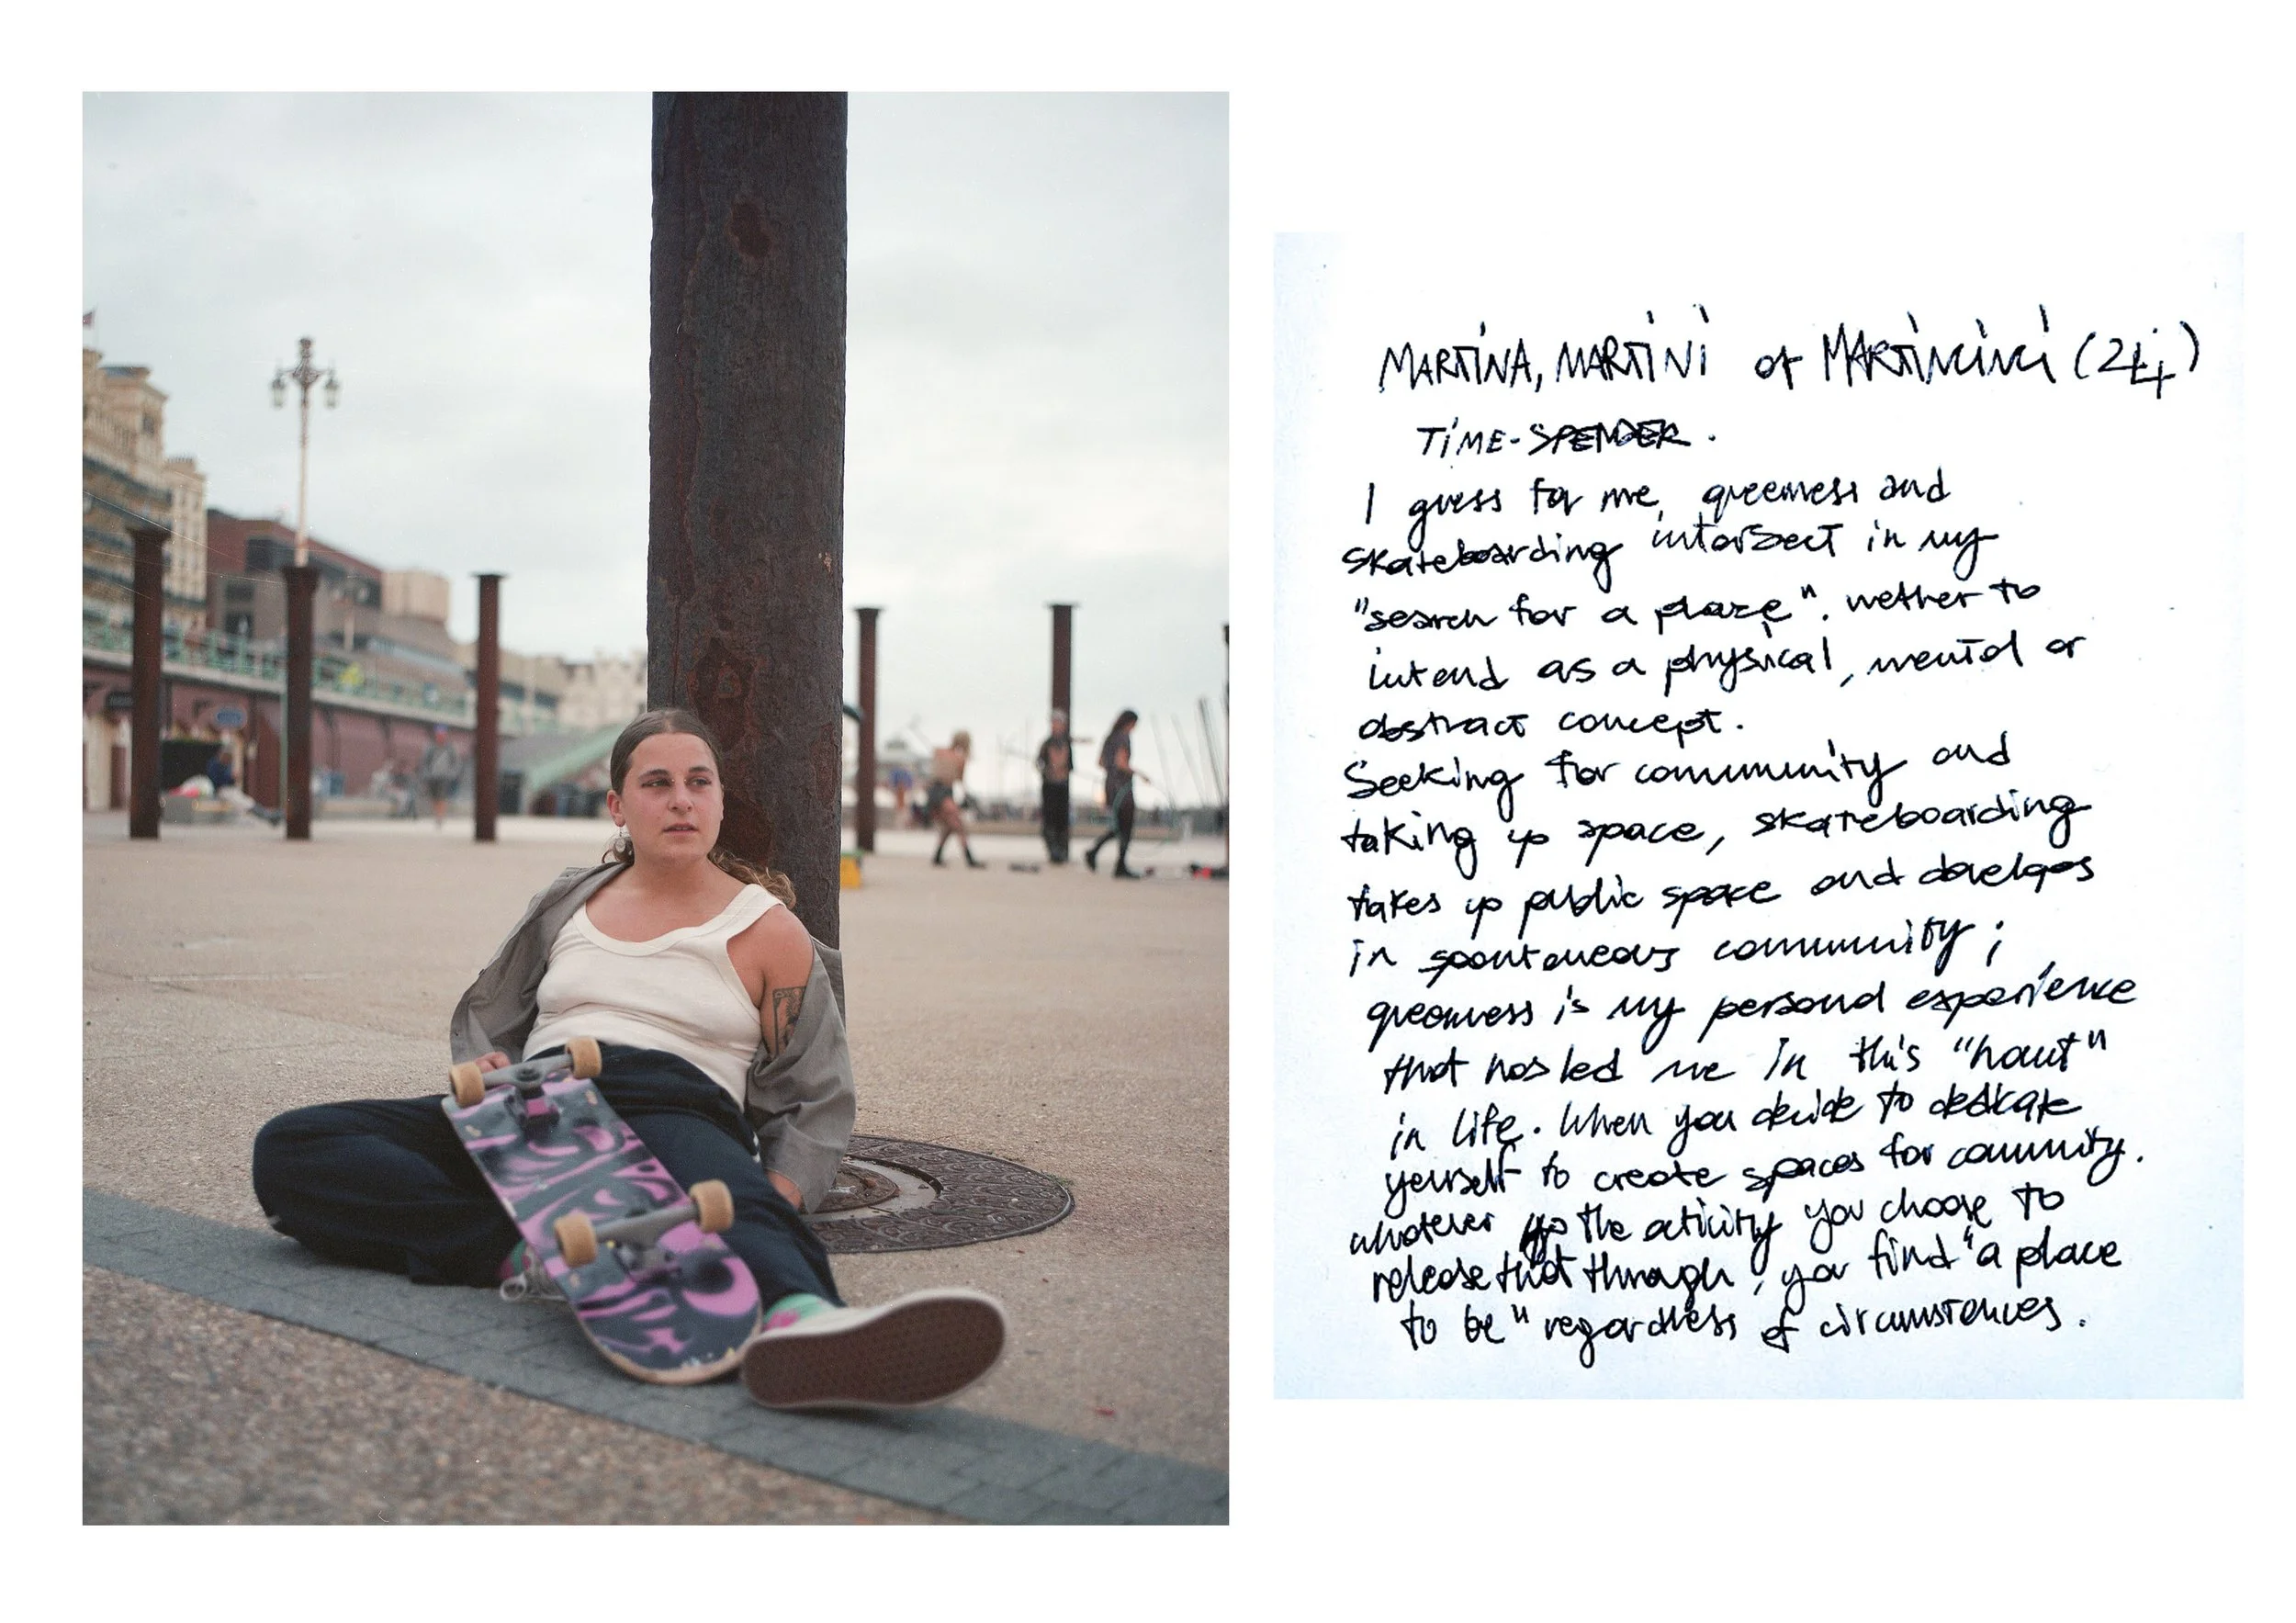 MARTiNA, MARTiNi or (24)
TiME-SPENDER.
I guess for me, queerness and
skateboarding intersect in my
"search for a place". wether to
intend as a physical, mental or
abstract concept.
Seeking for community and
taking up space, skateboarding
takes up public space and develops
in spontaneous community;
queerness is my personal experience
that has led me in this
in life. When you decide to dedicate
yourself to create spaces for community.
whatever the activity you choose to
release that through, you find "a place
to be" regardless of circumstances.